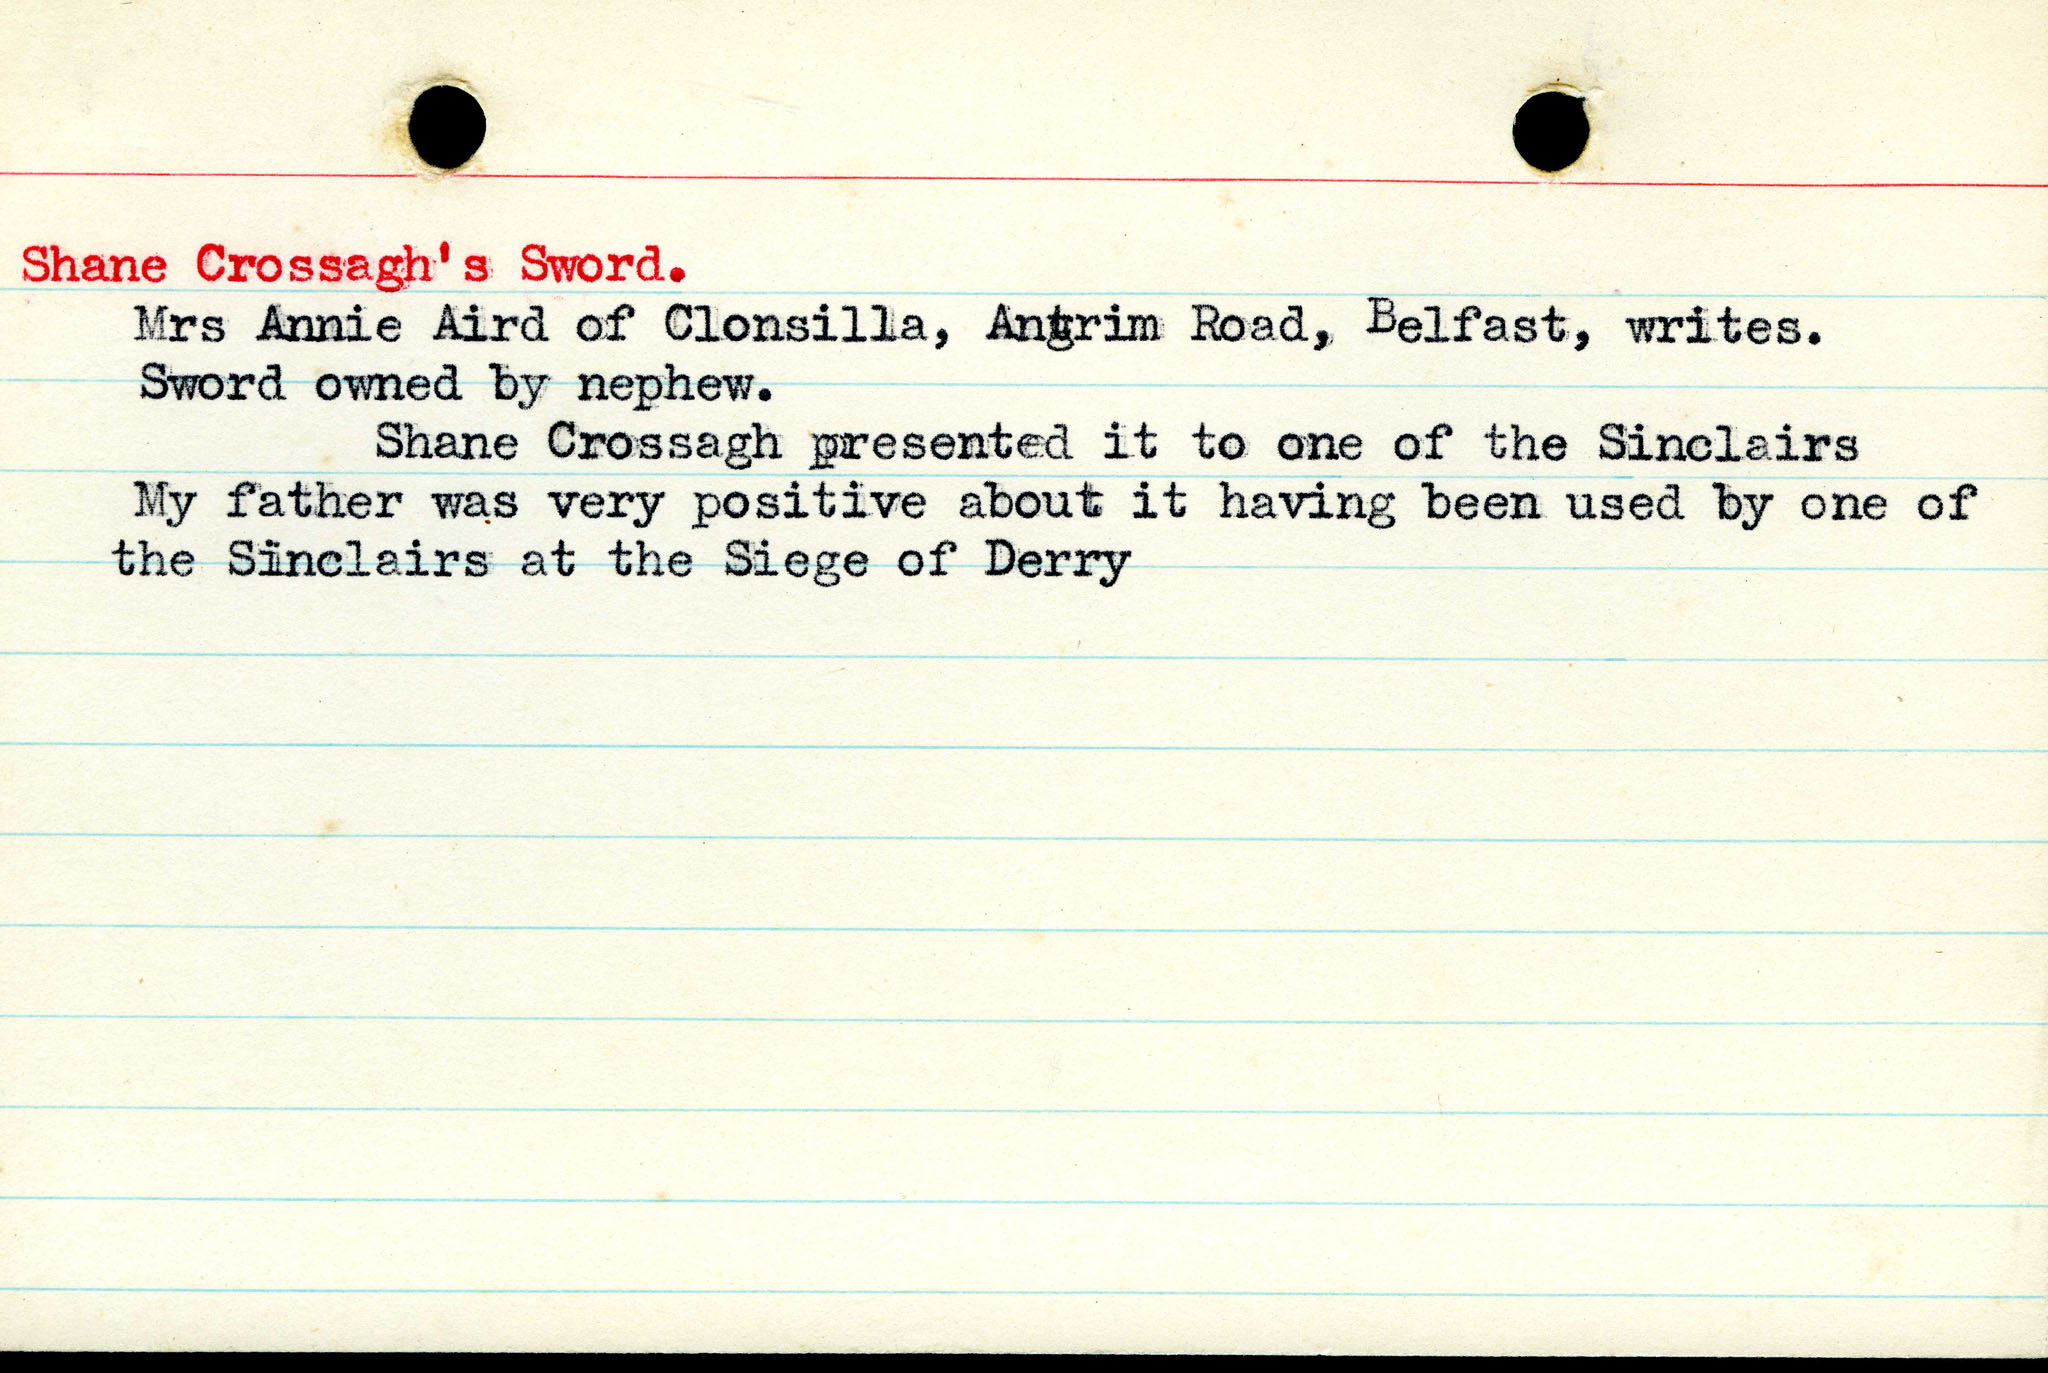 Shane Crossagh's Sword.
Mrs Annie Aird of Clonsilla, Antrim Road, Belfast, writes.
Sword owned by nephew.
Shane Crossagh presented it to one of the Sinclairs
My father was very positive about it having been used by one of
the Sinclairs at the Siege of Derry